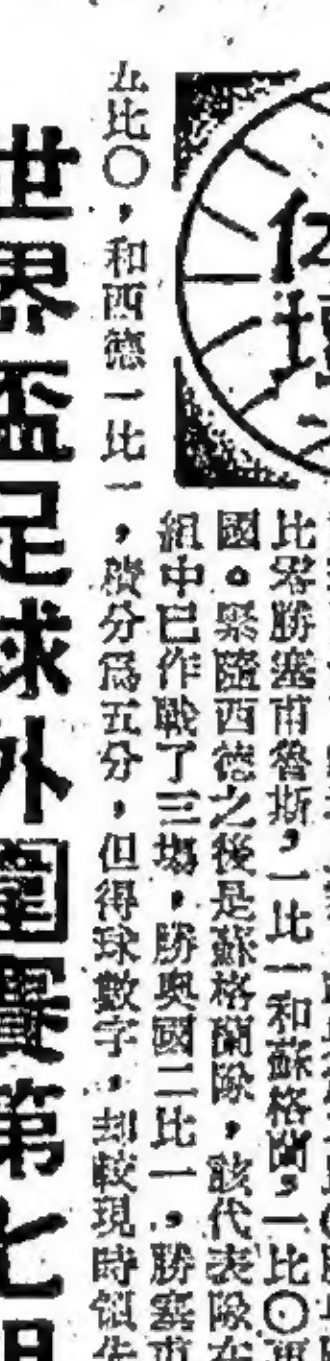 體壇
比零勝塞甫魯斯,一比一和蘇格蘭,一比〇
國。緊隨西德之後是蘇格蘭隊,該代表隊在
組中已作戰了三場,勝奧國二比一,勝塞甫
五比〇,和西德一比一,積分爲五分,但得球數字,却較現時領先
世界盃足球外圍賽第七